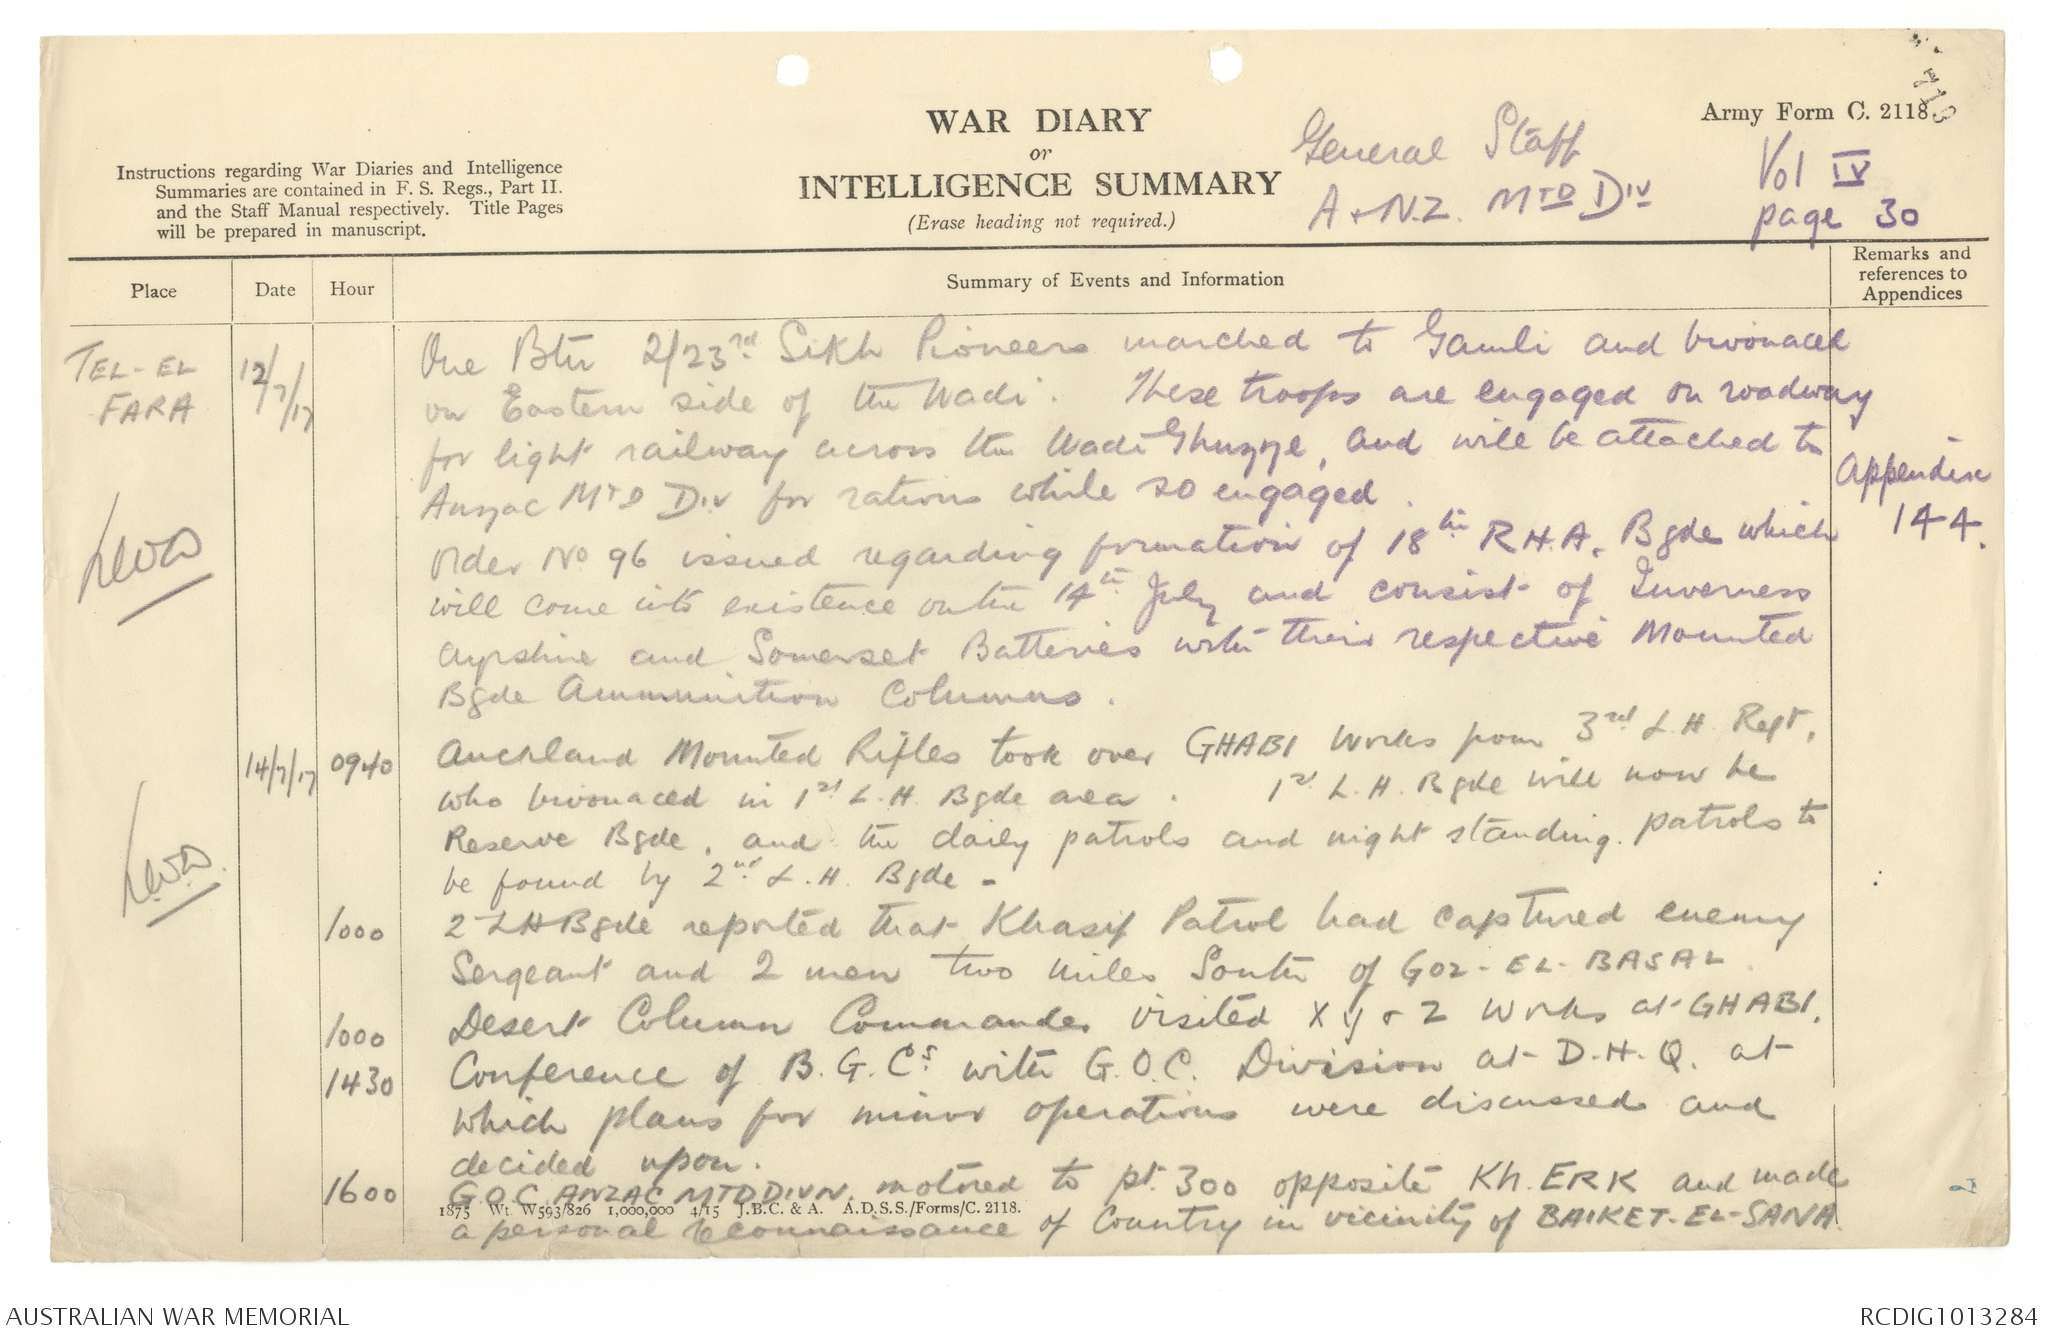 713
WAR DIARY
or
INTELLIGENCE SUMMARY
(Erase heading not required.)
General Staff
A + N.Z. MTD DIV
Army Form C. 2118
Vol IV
page 30
Instructions regarding War Diaries and Intelligence
Summaries are contained in F. S. Regs., Part II.
and the Staff Manual respectively. Title Pages
will be prepared in manuscript.
Place
Date
Hour
Summary of Events and Information
Remarks and
references to
Appendices
TEL-EL
FARA
12/7/17
One Btn 2/23rd Sikh Pioneers marched to Gamli and bivouaced
on Eastern side of the Wadi. These troops are engaged on roadway
for light railway across the Wadi Ghuzze, and will be attached to
Anzac MTD DIV for rations while so engaged.
Order No 96 issued regarding formation of 18th R.H.A. Bgde which
will come into existence on the 14th July and consist of Inverness
Ayrshire and Somerset Batteries with their respective Mounted
Bgde Ammunition Columns.
Appendix
144.
14/7/17 0940
Auckland Mounted Rifles took over GHABI Works from 3rd L.H. Regt,
who bivouaced in 1st L.H. Bgde area. 1st L.H. Bgde will now be
Reserve Bgde, and the daily patrols and night standing patrols to
be found by 2nd L.H. Bgde -
1000
2 LH Bgde reported that Khasif Patrol had captured enemy
Sergeant and 2 men two miles South of GOZ-EL-BASAL
1000
Desert Column Commander visited X Y + Z Works at GHABI.
1430
Conference of B.G.Cs with G.O.C. Division at D.H.Q. at
which plans for minor operations were discussed and
decided upon.
1600
G.O.C. ANZAC MTD DIVN. motored to pt. 300 opposite Kh. ERK and made
a personal reconnaissance of Country in vicinity of BAIKET-EL-SANA.
1875 Wt. W593/826 1,000,000 4/15 J.B.C. & A. A.D.S.S./Forms/C. 2118.
AUSTRALIAN WAR MEMORIAL
RCDIG1013284